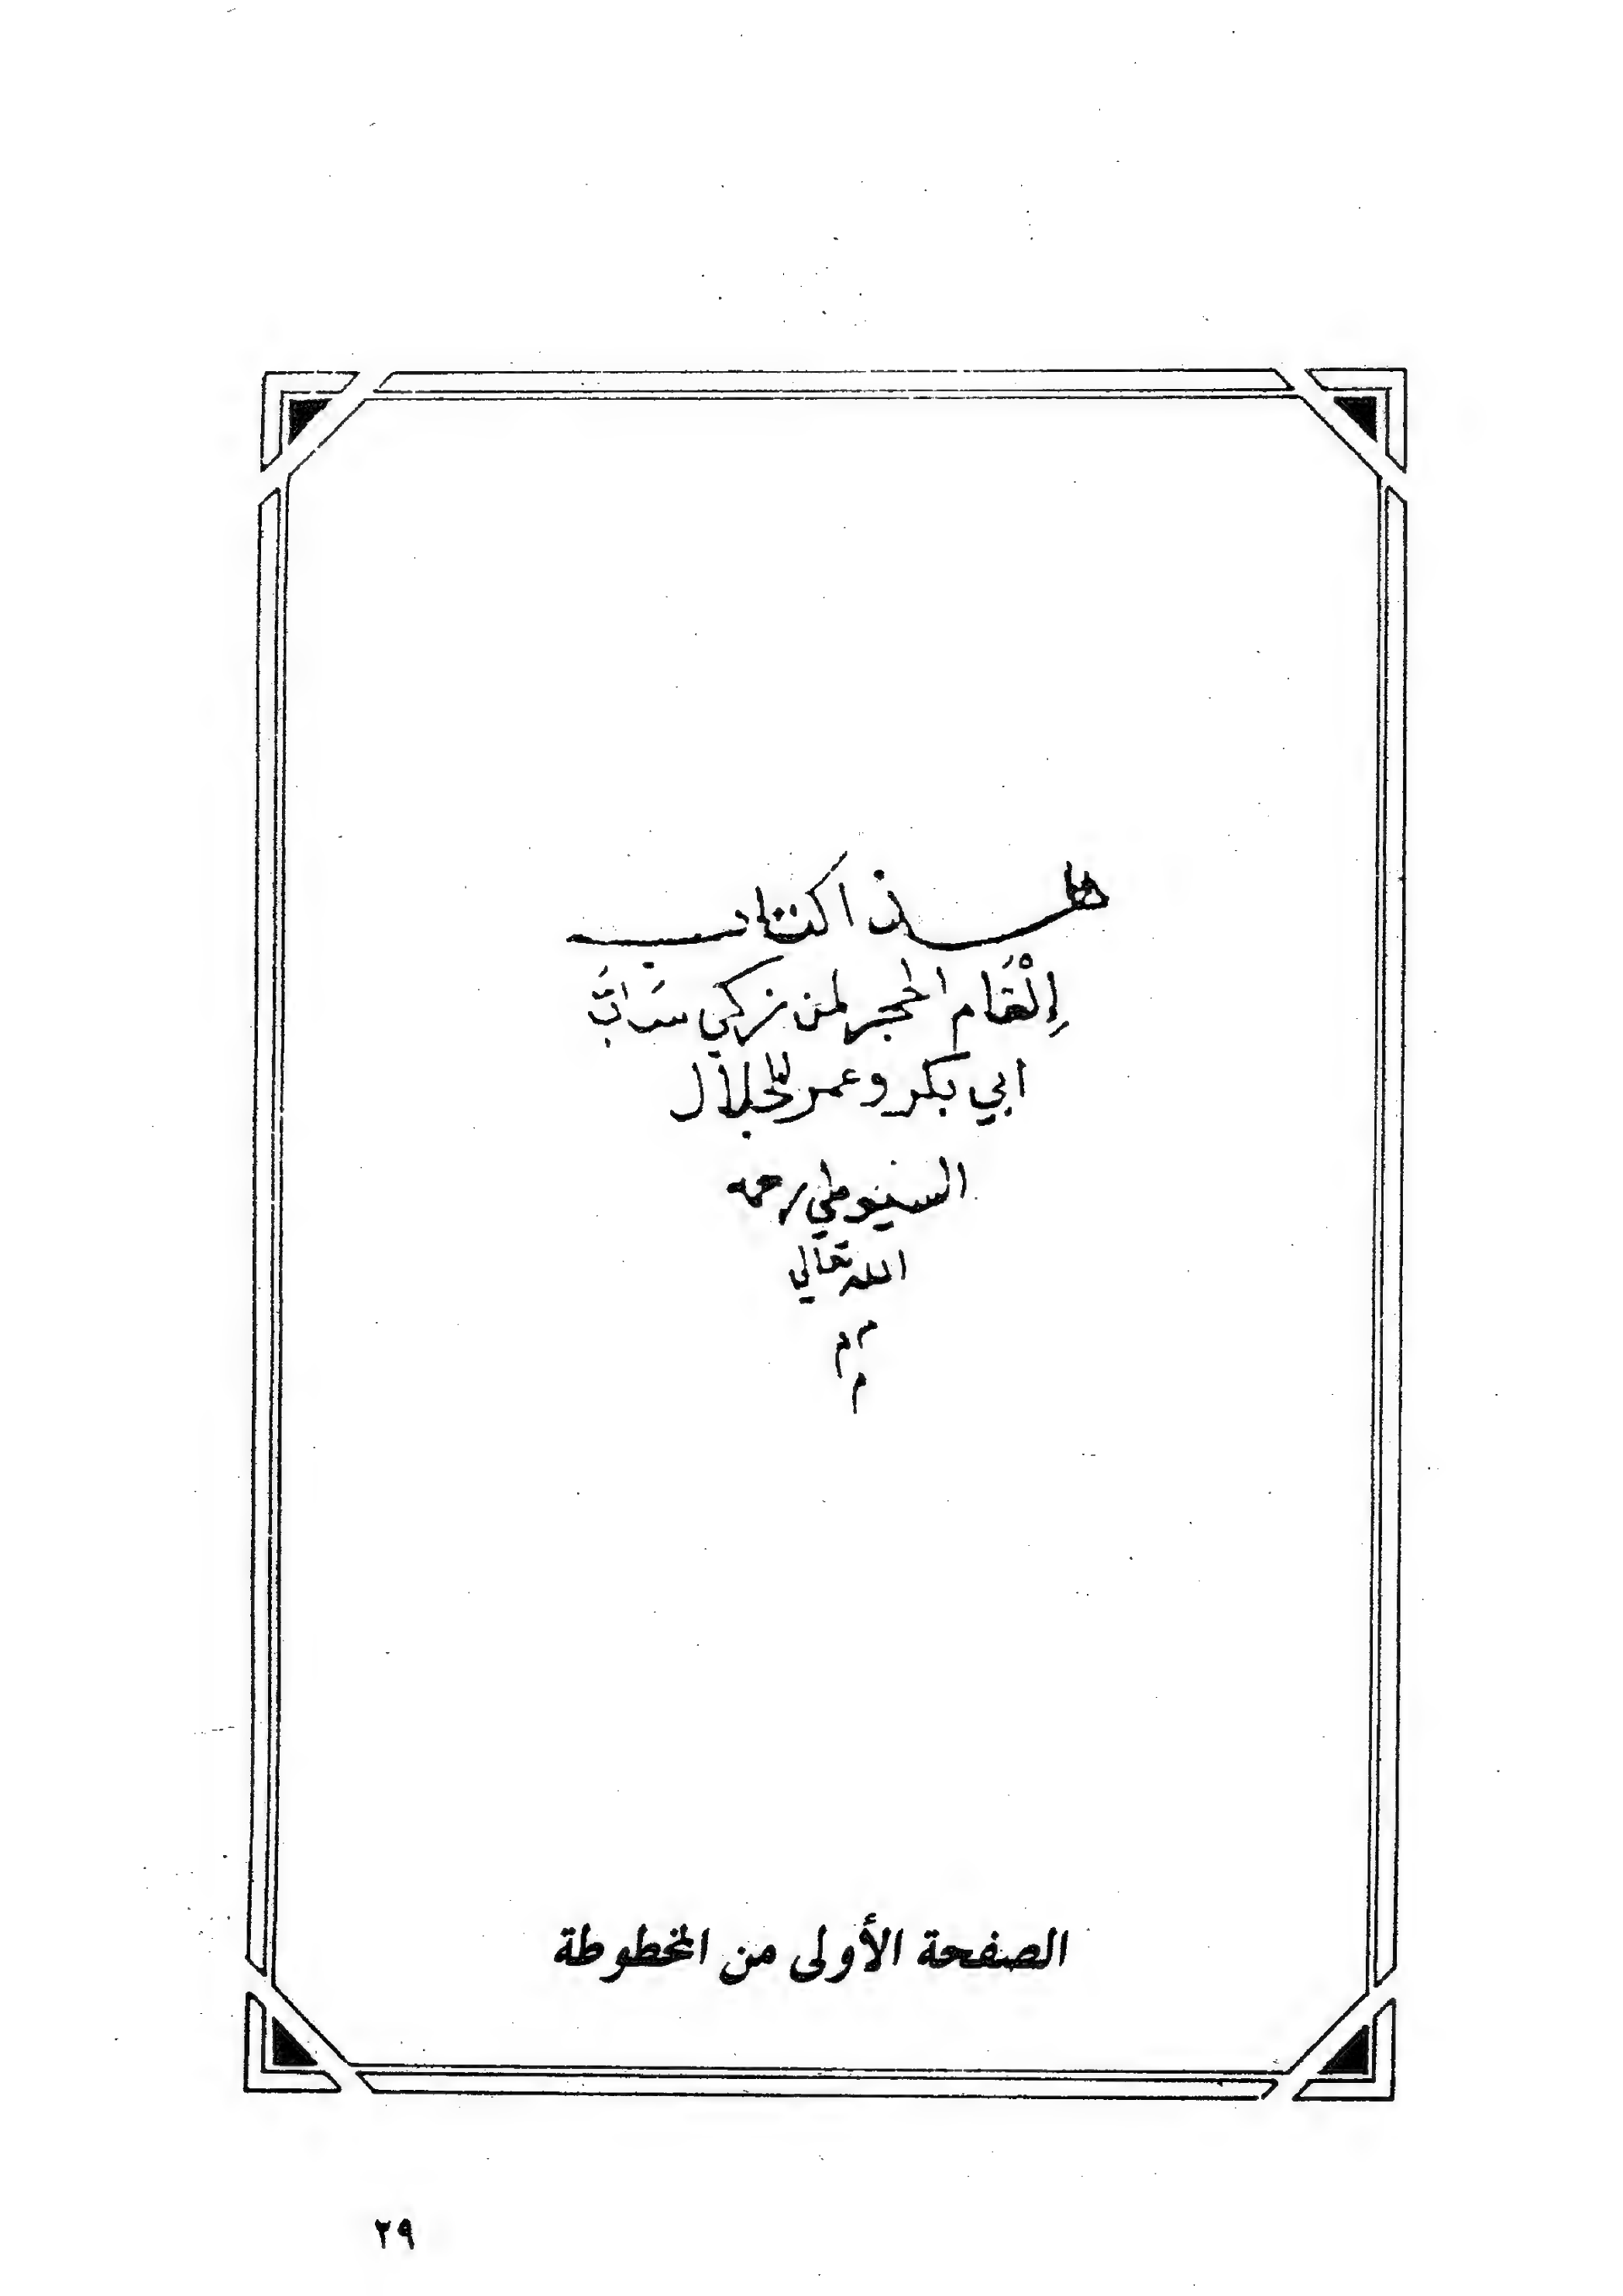 هٰذا كتاب
إِلْقَام الحجر لمن زكى سَابَّ
ابي بكر وعمر للجلال
السيوطي رحمه
الله تعالى
م م
م
الصفحة الأولى من المخطوطة
٢٩